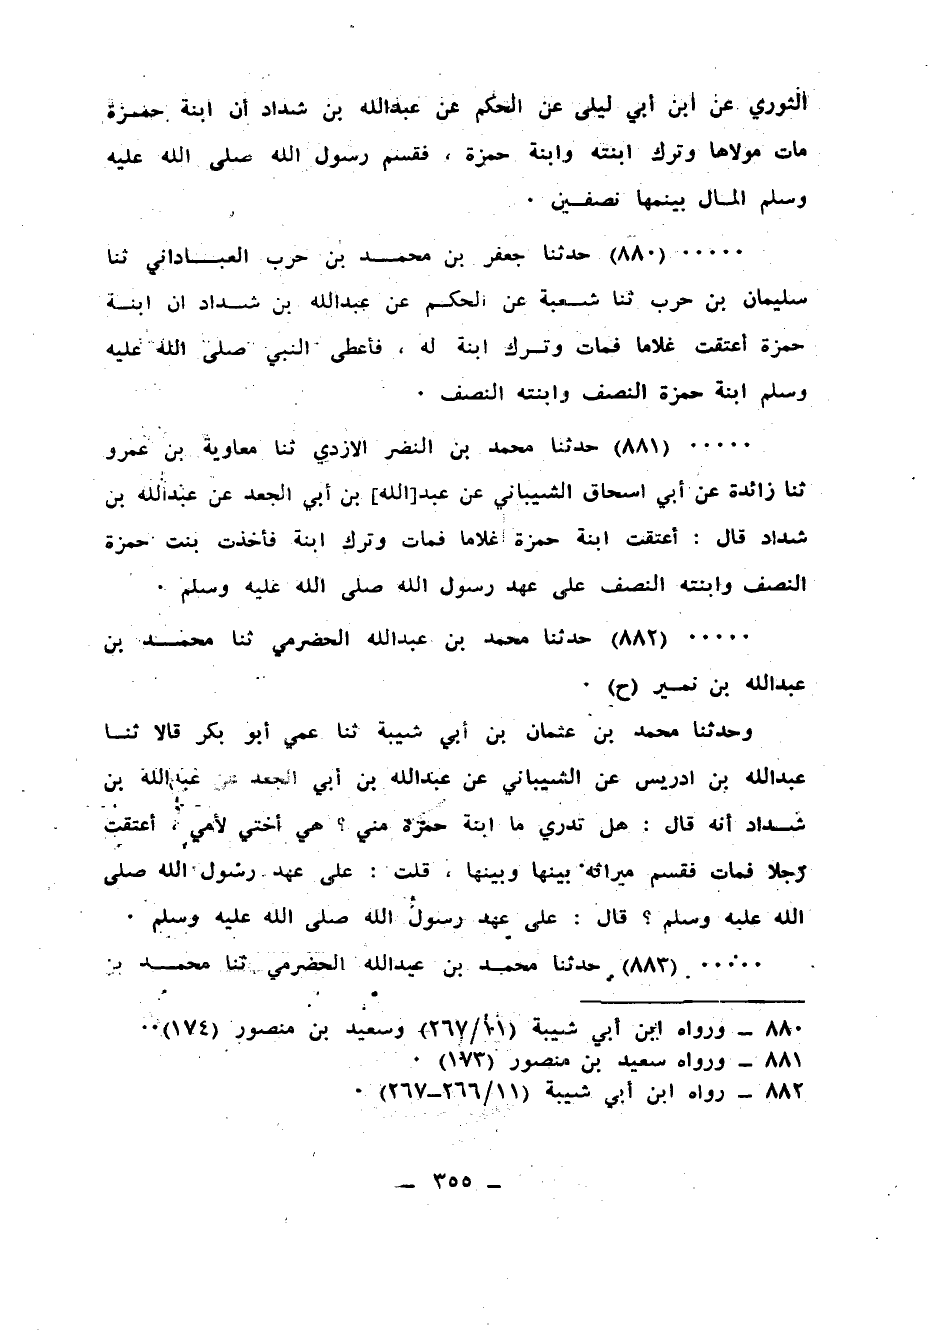 الثوري عن ابن أبي ليلى عن الحكم عن عبدالله بن شداد أن ابنة حمزة
مات مولاها وترك ابنته وابنة حمزة ، فقسم رسول الله صلى الله عليه
وسلم المال بينمها نصفين .
..... (٨٨٠) حدثنا جعفر بن محمد بن حرب العباداني ثنا
سليمان بن حرب ثنا شعبة عن الحكم عن عبدالله بن شداد ان ابنة
حمزة أعتقت غلاما فمات وترك ابنة له ، فأعطى النبي صلى الله عليه
وسلم ابنة حمزة النصف وابنته النصف .
..... (٨٨١) حدثنا محمد بن النضر الازدي ثنا معاوية بن عمرو
ثنا زائدة عن أبي اسحاق الشيباني عن عبد[الله] بن أبي الجعد عن عبدالله بن
شداد قال : أعتقت ابنة حمزة غلاما فمات وترك ابنة فأخذت بنت حمزة
النصف وابنته النصف على عهد رسول الله صلى الله عليه وسلم .
..... (٨٨٢) حدثنا محمد بن عبدالله الحضرمي ثنا محمد بن
عبدالله بن نمير (ح) .
وحدثنا محمد بن عثمان بن أبي شيبة ثنا عمي أبو بكر قالا ثنا
عبدالله بن ادريس عن الشيباني عن عبدالله بن أبي الجعد عن عبدالله بن
شداد أنه قال : هل تدري ما ابنة حمزة مني ؟ هي أختي لأمي ، أعتقت
رجلا فمات فقسم ميراثه بينها وبينها ، قلت : على عهد رسول الله صلى
الله عليه وسلم ؟ قال : على عهد رسول الله صلى الله عليه وسلم .
..... (٨٨٣) حدثنا محمد بن عبدالله الحضرمي ثنا محمد بن
٨٨٠ ــ ورواه ابن أبي شيبة (٢٦٧/١١) وسعيد بن منصور (١٧٤) .
٨٨١ ــ ورواه سعيد بن منصور (١٧٣) .
٨٨٢ ــ رواه ابن أبي شيبة (٢٦٦/١١–٢٦٧) .
ــ ٣٥٥ ــ